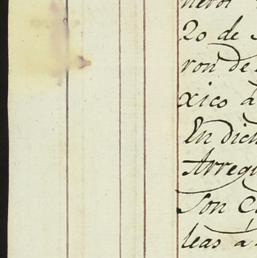 20 de
ron de
xico á
En dich
Arregu
Son C
leas a